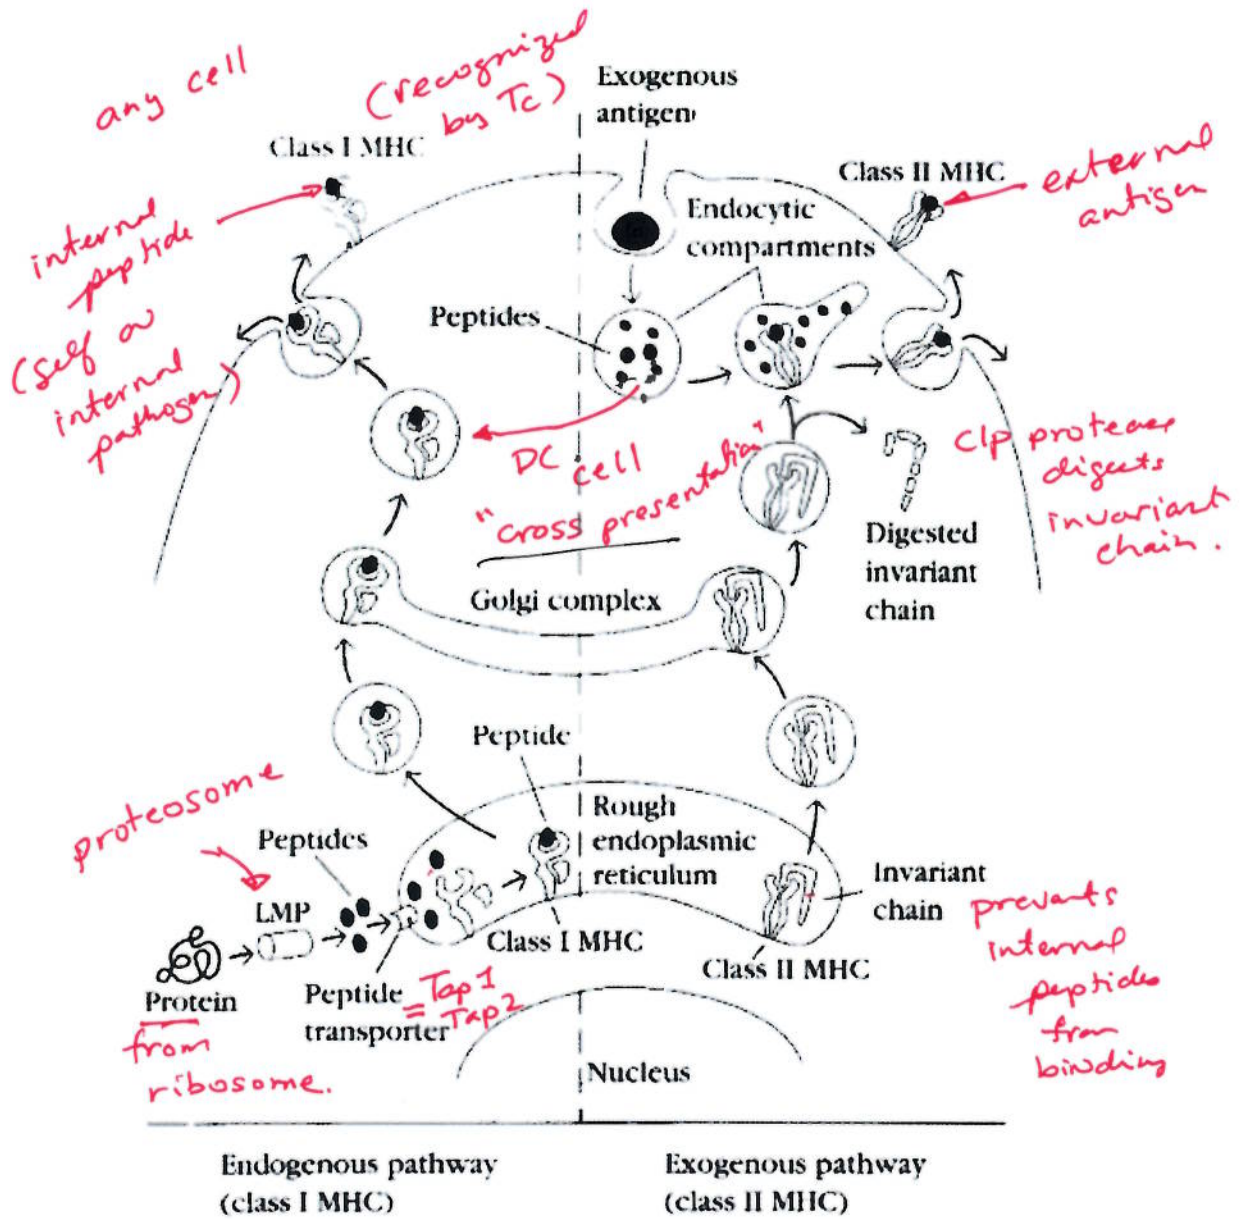 any cell
(recognized
by Tc)
Exogenous
antigen
Class I MHC
Class II MHC
external
antigen
internal
peptide
(self or
internal
pathogen)
Endocytic
compartments
Peptides
DC cell
"cross presentation"
Clp protease
digests
invariant
chain.
Digested
invariant
chain
Golgi complex
Peptide
proteosome
Peptides
LMP
Rough
endoplasmic
reticulum
Invariant
chain
prevants
internal
peptides
from
binding
Class I MHC
Class II MHC
Protein
from
ribosome.
Peptide
transporter
= Tap1
Tap2
Nucleus
Endogenous pathway
(class I MHC)
Exogenous pathway
(class II MHC)